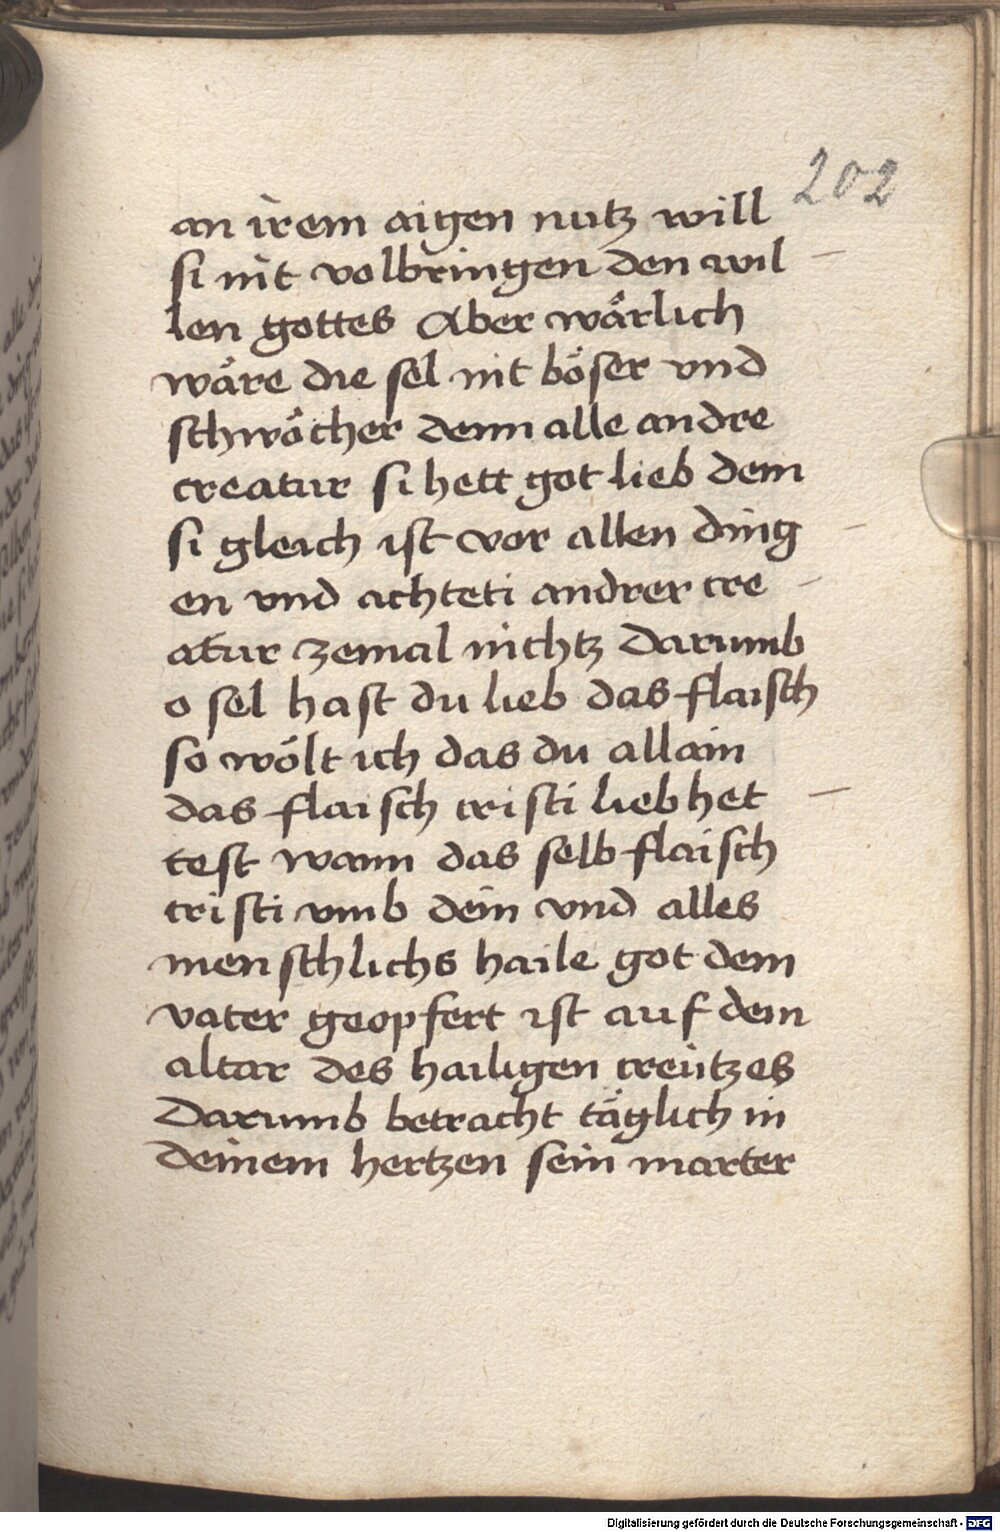 202
an irem aigen nutz will
si nit volbringen den wil –
len gottes Aber wärlich
wäre die sel nit böser vnd
schwöcher denn alle andre
creatur si hett got lieb dem
si gleich ist vor allen ding –
en vnd achteti andrer cre –
atur zemal nichtz Darumb
o sel hast du lieb das flaisch
so wölt ich das du allain
das flaisch cristi lieb het –
test wann das selb flaisch
cristi vmb dein vnd alles
menschlichs haile got dem
vater geopfert ist auf dem
altar des hailigen creützes
Darumb betracht täglich in
deinem hertzen sein marter
Digitalisierung gefördert durch die Deutsche Forschungsgemeinschaft - DFG